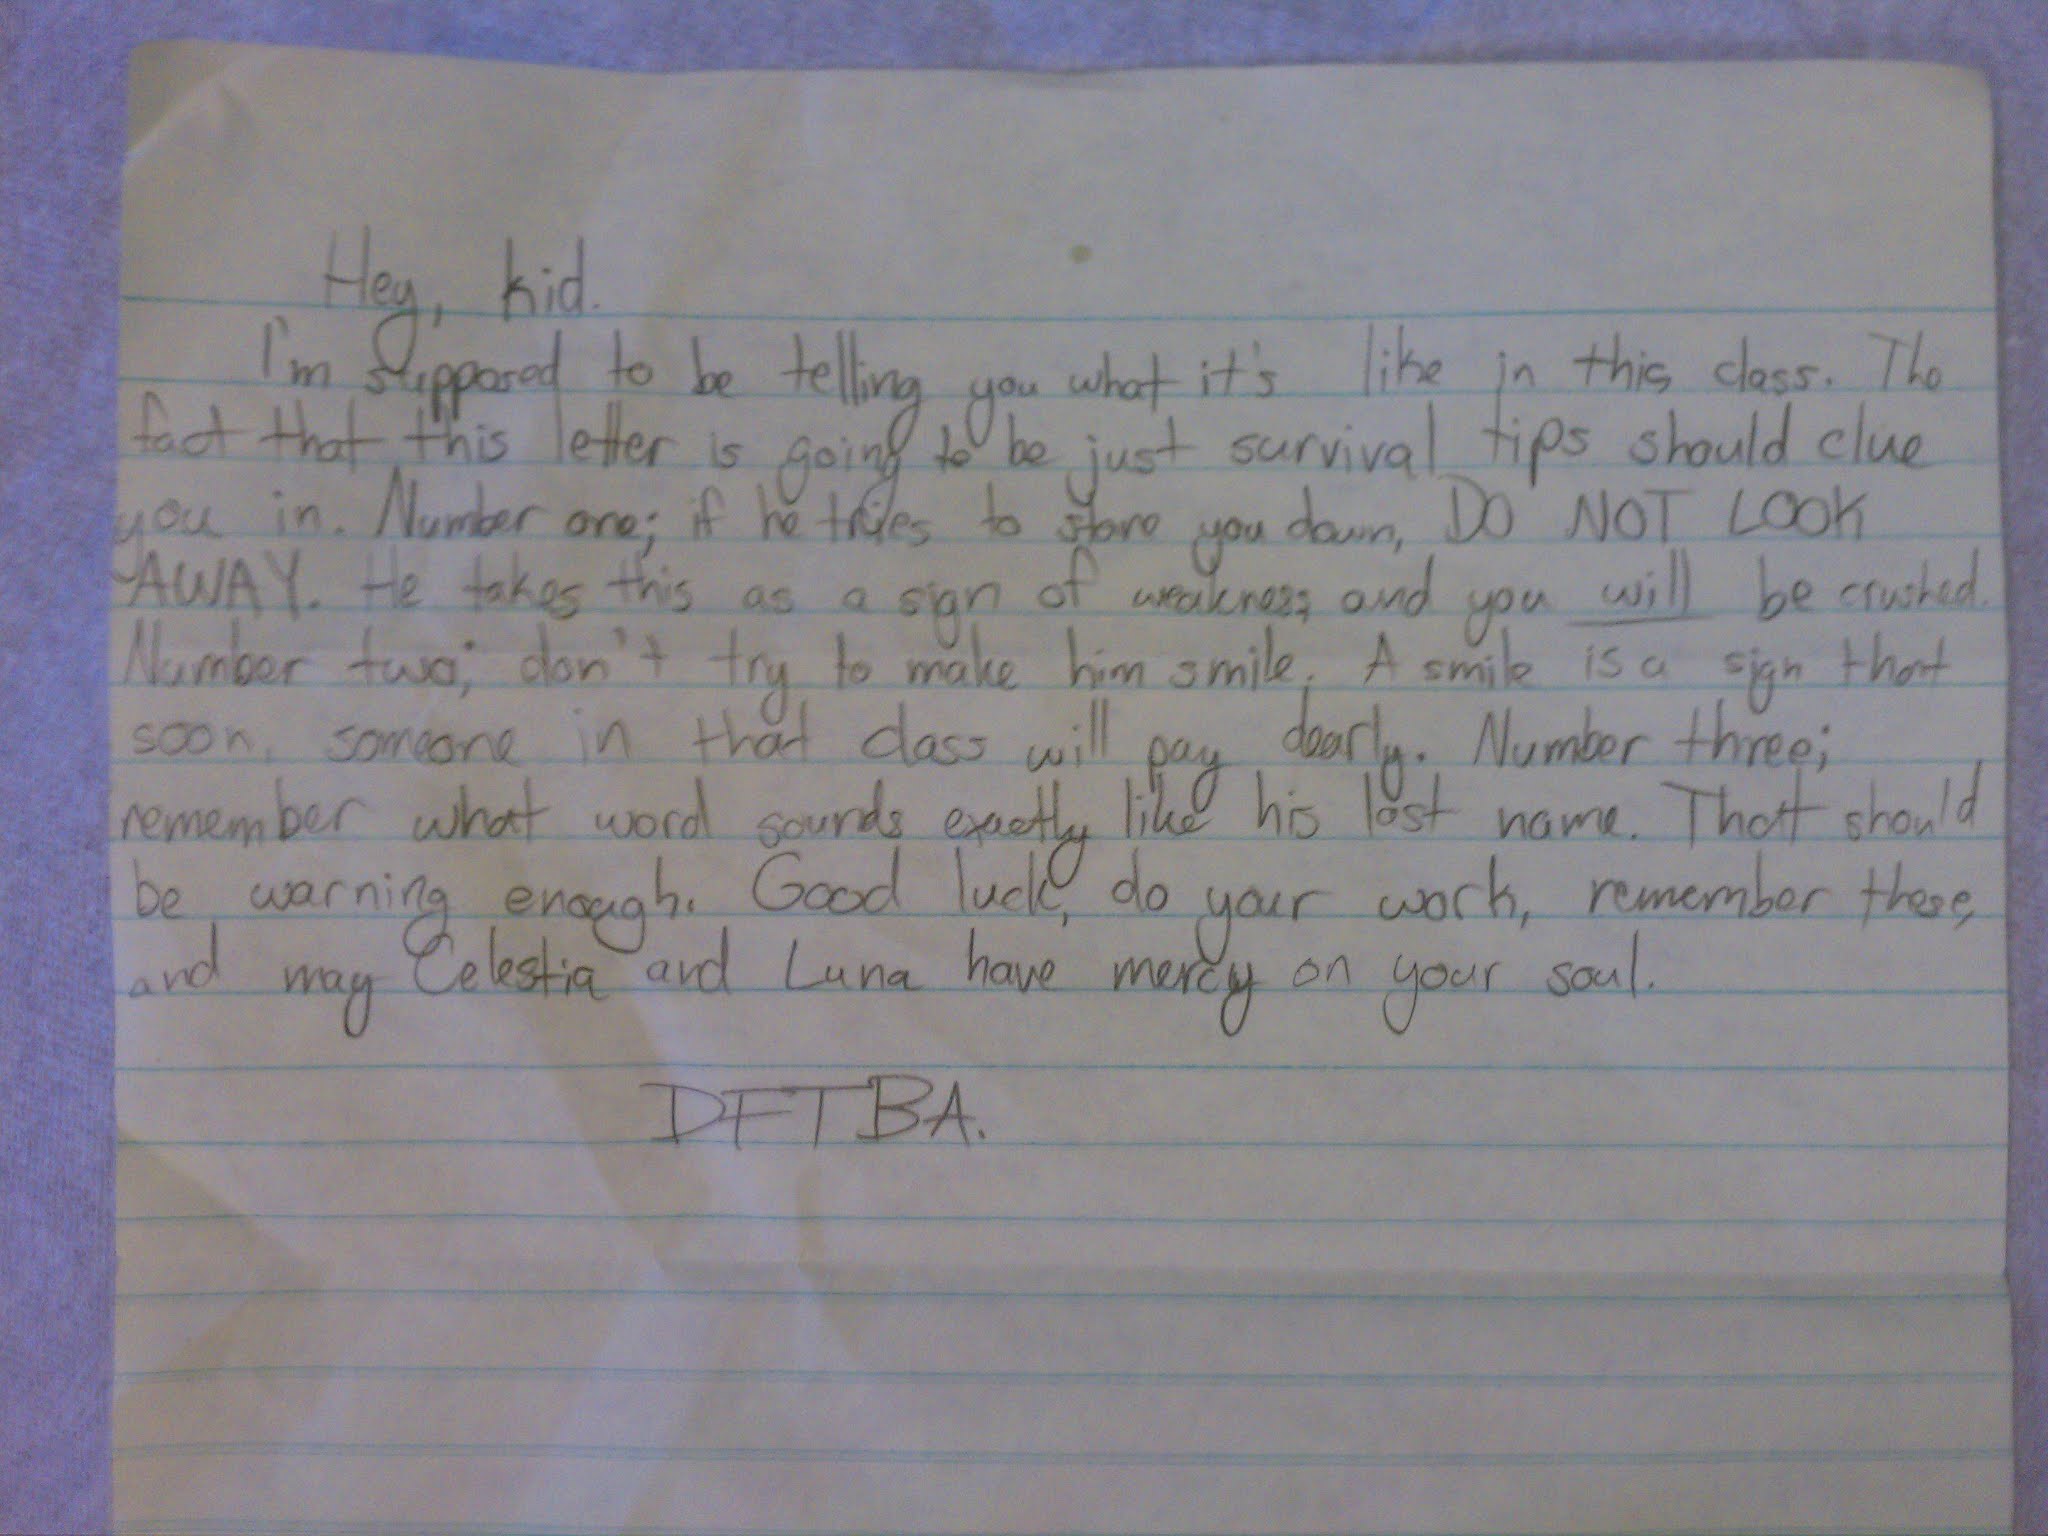 Hey, kid.
I'm supposed to be telling you what it's like in this class. The
fact that this letter is going to be just survival tips should clue
you in. Number one; if he tries to stare you down, DO NOT LOOK
AWAY. He takes this as a sign of weakness and you will be crushed.
Number two; don't try to make him smile. A smile is a sign that
soon, someone in that class will pay dearly. Number three;
remember what word sounds exactly like his last name. That should
be warning enough. Good luck, do your work, remember these,
and may Celestia and Luna have mercy on your soul.
DFTBA.